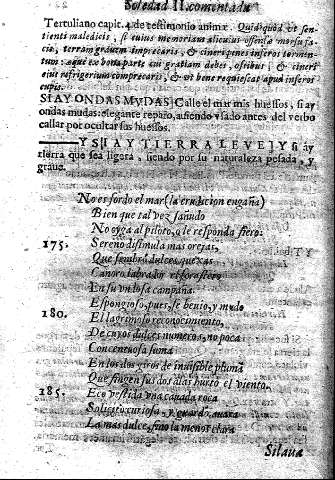 Soledad II. comentada
Tertuliano capit. 4. de testimonio animæ. Quid quod vt sen-
tienti maledicis, si cuius memoriam alicuius offensæ morsu fa-
cis, terram grauem imprecaris, & cineri penes inferos tormen-
tum: æquè ex bona parte cui gratiam debes, ossibus, & cineri
eius refrigerium comprecaris, & vt bene requiescat apud inferos
cupis.
SI AY ONDAS MUDAS] Calle el mar mis huessos, si ay
ondas mudas: elegante reparo, auiendo vsado antes del verbo
callar por ocultar sus huessos.
Y SI AY TIERRA LEVE] Y si ay
tierra que sea ligera, siendo por su naturaleza pesada, y
graue.
No es sordo el mar (la erudicion engaña)
Bien que tal vez sañudo
No oyga al piloto, o le responda fiero:
175. Sereno dissimula mas orejas,
Que sembrò dulces quexas
Canoro labrador el forastero
En su vndosa campaña.
Espongioso, pues, se beuio, y mudo
180. El lagrimoso reconocimiento,
De cuyos dulces numeros, no poca
Concentuosa suma
En los dos giros de inuisible pluma
Que fingen sus dos alas hurtò el viento,
185. Eco vestida vna cauada roca
Solicitò curiosa, y guardò auara
La mas dulce, sino la menos clara
Silaua